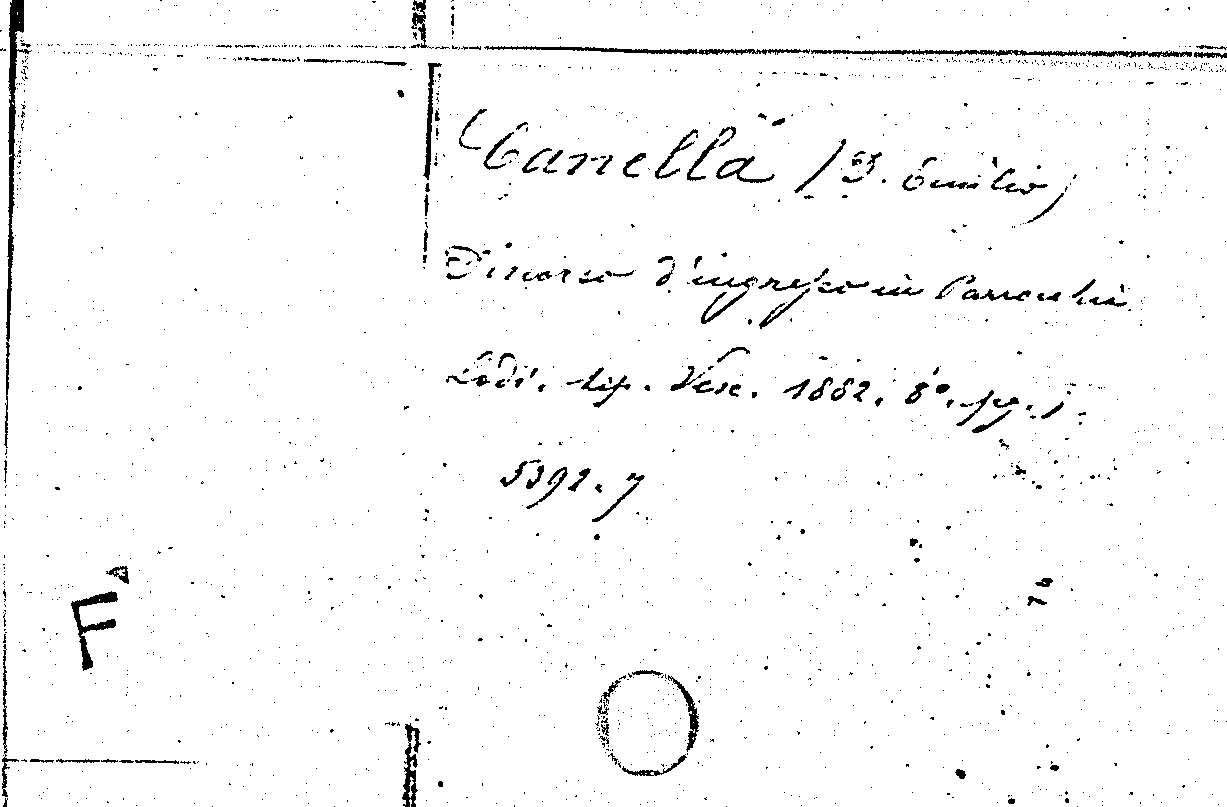 Canella (D. Emilio)
Discorso d'ingresso in Parrochia
Lodi. tip. Vesc. 1882. 8°. pg.
5392. 7
F